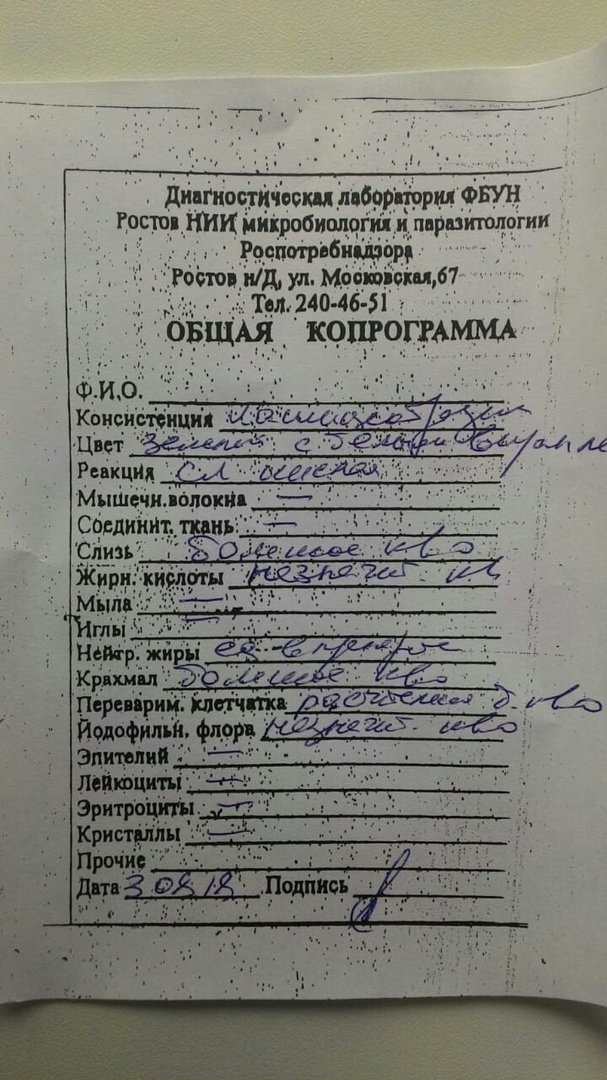 Диагностическая лаборатория ФБУН
Ростов НИИ микробиология и паразитологии
Роспотребнадзора
Ростов н/Д, ул. Московская,67
Тел. 240-46-51
ОБЩАЯ КОПРОГРАММА
Ф.И.О.
Консистенция
Цвет с белыми
Реакция сл кислая
Мышечн.волокна —
Соединит. ткань —
Слизь большое кво
Жирн. кислоты незначит кв
Мыла —
Иглы —
Нейтр. жиры ед в
Крахмал большое кво
Переварим. клетчатка б. кво
Йодофильн. флора незначит. кво
Эпителий —
Лейкоциты —
Эритроциты —
Кристаллы —
Прочие
Дата Подпись